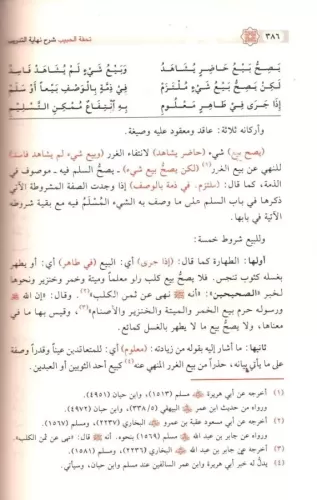 ٣٨٦ تحفة الحبيب شرح نهاية التدريب
يَصِحُّ بَيْعُ حَاضِرٍ يُشَاهَدُ وَبَيْعُ شَيْءٍ لَمْ يُشَاهَدْ فَاسِدُ
لَكِنْ يَصِحُّ بَيْعُ شَيْءٍ مُلْتَزَمْ فِي ذِمَّةٍ بِالْوَصْفِ بَيْعاً أَوْ سَلَمْ
إِذَا جَرَى فِي ظَاهِرٍ مَعْلُومِ بِهِ انْتِفَاعٌ مُمْكِنِ التَّسْلِيمِ
وأركانه ثلاثة: عاقد ومعقود عليه وصيغة.
(يصح بيع) شيء (حاضر يشاهد) لانتفاء الغرر (وبيع شيء لم يشاهد فاسد)
للنهي عن بيع الغرر(١) (لكن يصح بيع شيء)، يصحُّ السلم فيه - موصوف في
الذمة، كما قال: (ملتزم. في ذمة بالوصف) إذا وجدت الصفة المشروطة الآتي
ذكرها في باب السلم على ما وصف به الشيء المُسْلَمُ فيه مع بقية شروطه
الآتية في بابها.
وللبيع شروط خمسة:
أولها: الطهارة كما قال: (إذا جرى) أي: البيع (في ظاهر) أي: أو يطهر
بغسله كثوب تنجس. فلا يصحُّ بيع كلب ولو معلماً وميتة وخمر وخنزير ونحوها
لخبر «الصحيحين»: «أنه ﷺ نهى عن ثمن الكلب»(٢). وقال: «إن الله
ورسوله حرم بيع الخمر والميتة والخنزير والأصنام»(٣)، وقيس بها ما في
معناها، ولا يصح بيع ما لا يطهر بالغسل كمائع.
ثانيها: ما أشار إليه بقوله من زيادته: (معلوم) أي: للمتعاقدين عيناً وقدراً وصفة
على ما يأتي بيانه، حذراً من بيع الغرر المنهي عنه(٤) كبيع أحد الثوبين أو العبدين.
(١) أخرجه عن أبي هريرة مسلم (١٥١٣)، وابن حبان (٤٩٥١).
ورواه من حديث ابن عمر البيهقي (٣٣٨/٥)، وابن حبان (٤٩٧٢).
(٢) أخرجه عن أبي مسعود عقبة بن عمرو البخاري (٢٢٣٧)، ومسلم (١٥٦٧).
ورواه عن جابر بن عبد الله مسلم (١٥٦٩) بنحوه. أنه قال: «نهى عن ثمن الكلب».
(٣) أخرجه عن جابر بن عبد الله البخاري (٢٢٣٦)، ومسلم (١٥٨١).
(٤) يدلُّ له خبر أبي هريرة وابن عمر السالفين عند مسلم وابن حبان، وسيأتي.